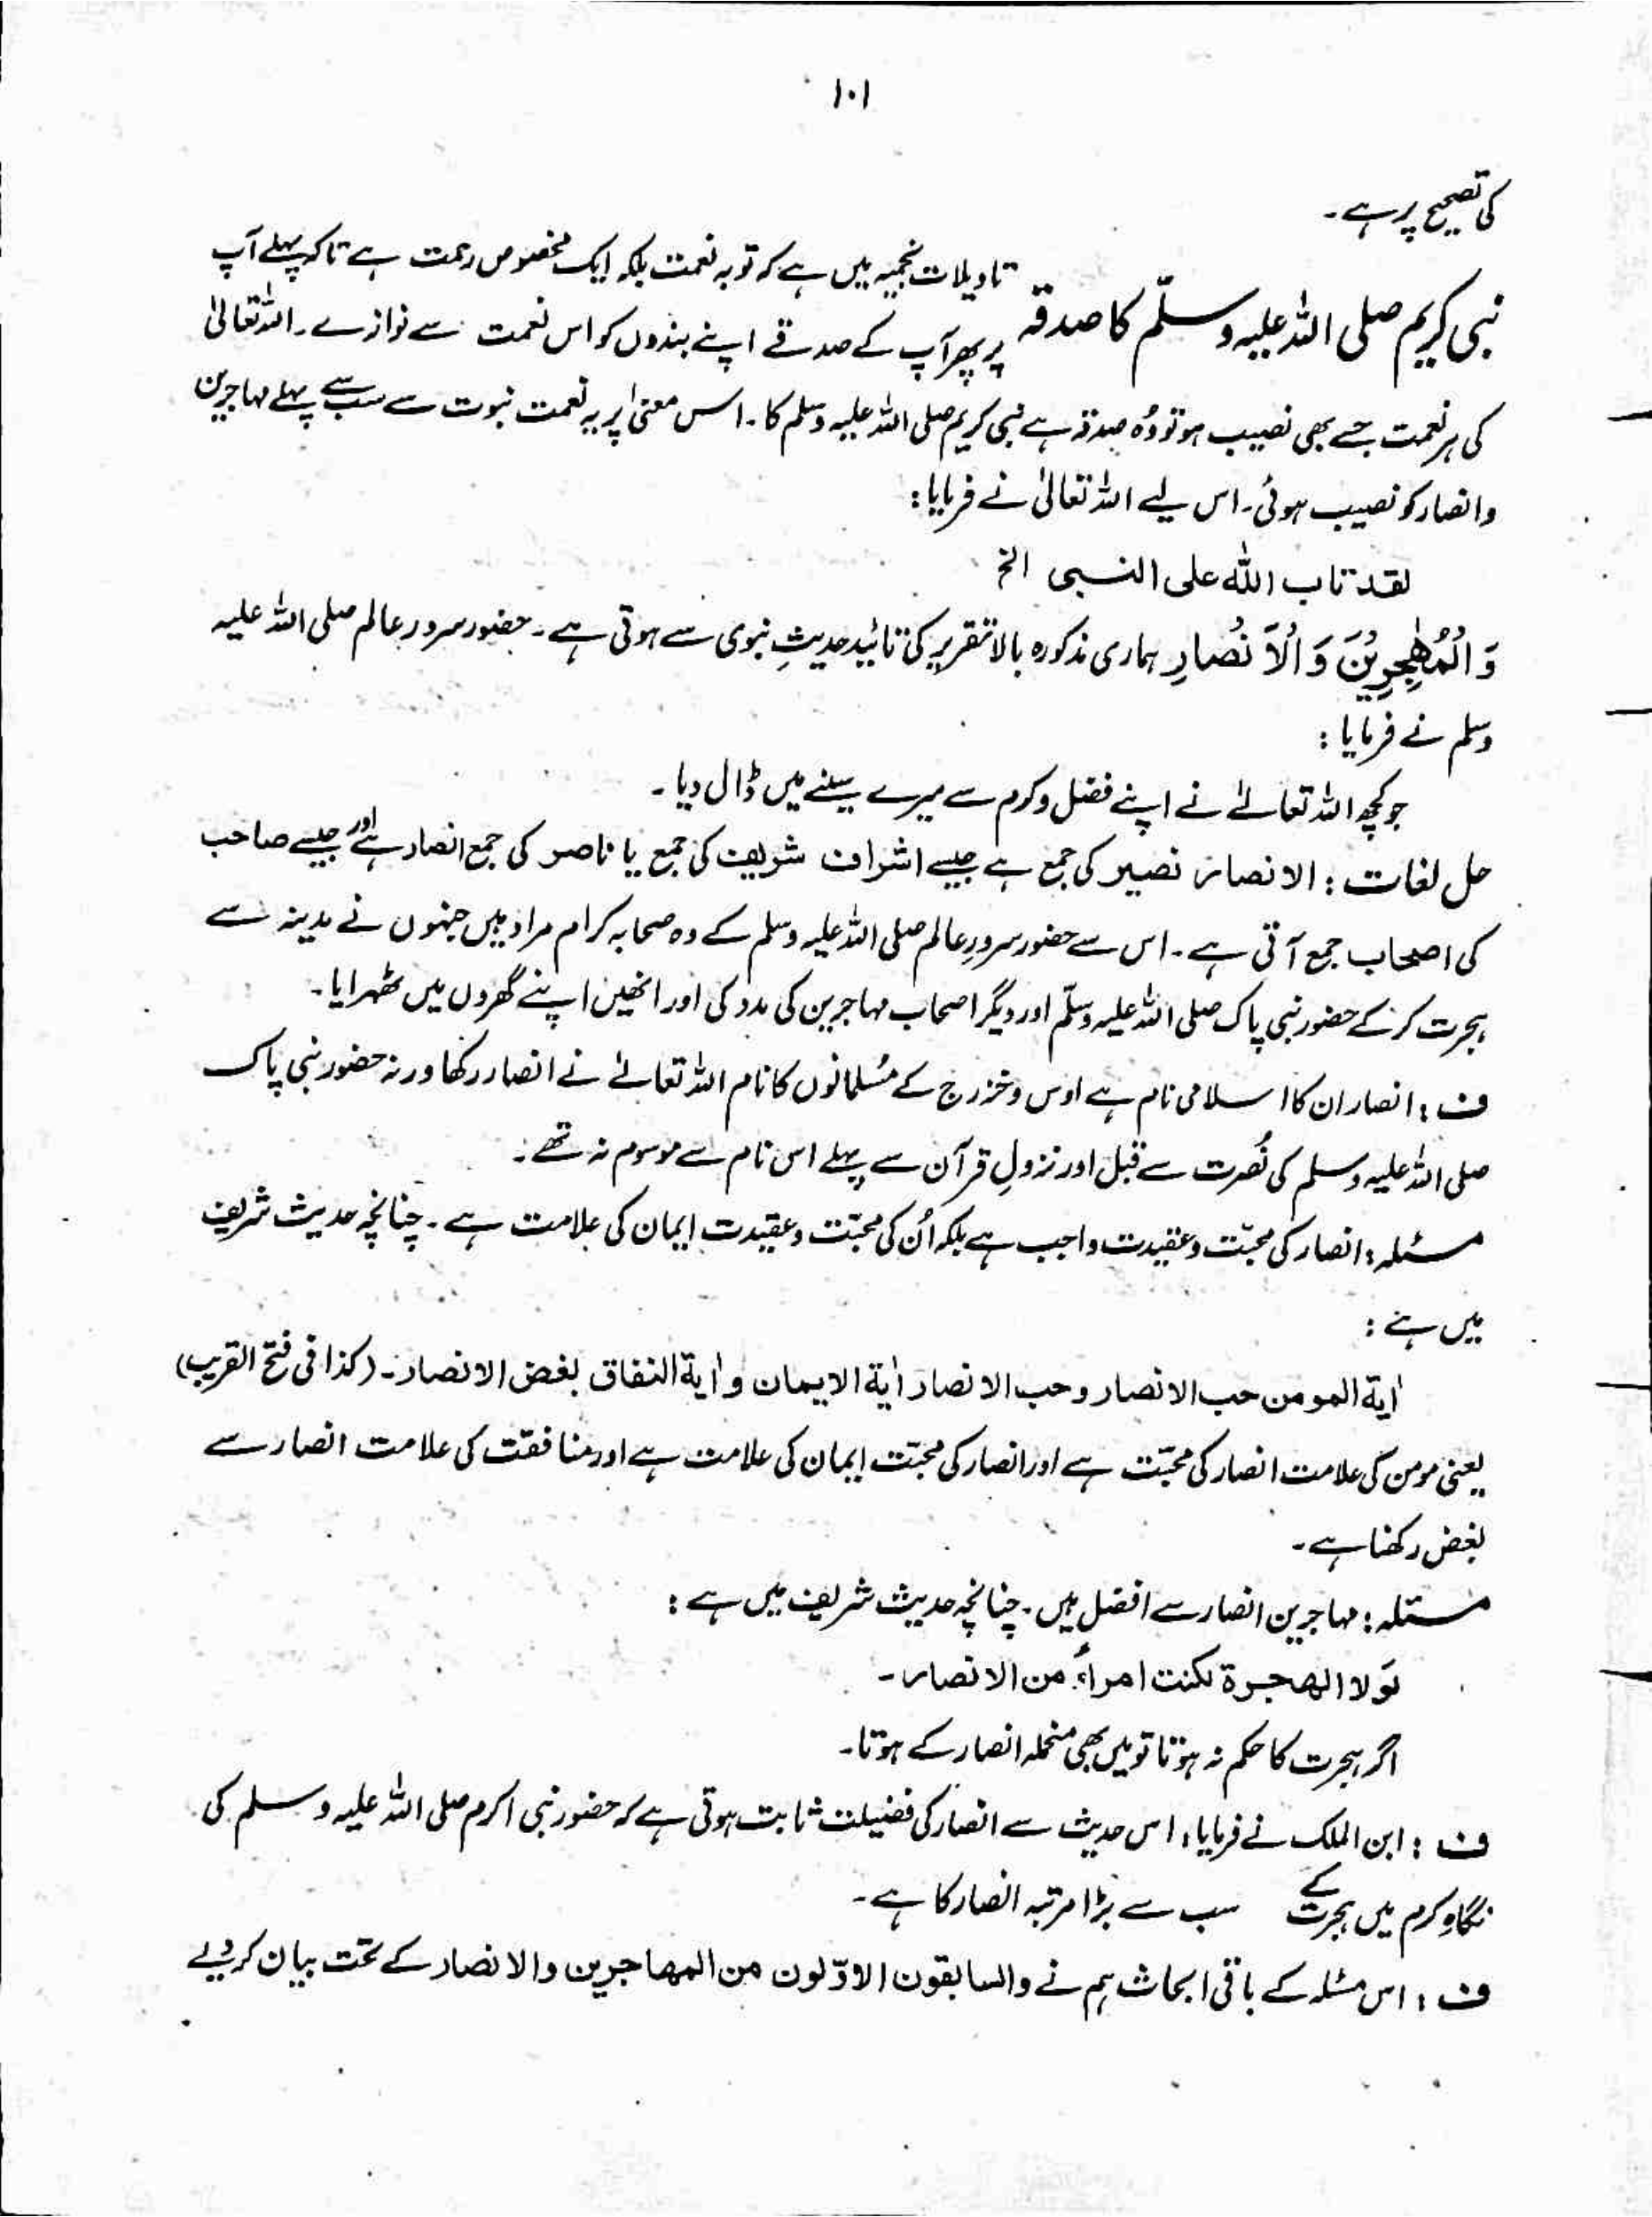 ۱۰۱
کی تصحیح پر ہے۔
نبی کریم صلی اللہ علیہ وسلّم کا صدقہ
تاویلات نجمیہ میں ہے کہ توبہ نعمت بلکہ ایک مخصوص رحمت ہے تاکہ پہلے آپ
پر پھر آپ کے صدقے اپنے بندوں کو اس نعمت سے نوازے۔ اللہ تعالیٰ
کی ہر نعمت جسے بھی نصیب ہو تو وُہ صدقہ ہے نبی کریم صلی اللہ علیہ وسلم کا۔ اس معنیٰ پر یہ نعمت نبوت سے سب سے پہلے مہاجرین
وانصار کو نصیب ہوئی۔ اس لیے اللہ تعالیٰ نے فرمایا:
لقد تاب اللہ علی النبی الخ
وَالْمُهٰجِرِيْنَ وَالْاَنْصَارِ ہماری مذکورہ بالا تقریر کی تائید حدیثِ نبوی سے ہوتی ہے۔ حضور سرور عالم صلی اللہ علیہ
وسلم نے فرمایا:
جو کچھ اللہ تعالےٰ نے اپنے فضل و کرم سے میرے سینے میں ڈال دیا۔
حل لغات: الانصار، نصیر کی جمع ہے جیسے اشراف شریف کی جمع یا ناصر کی جمع انصار ہے اور جیسے صاحب
کی اصحاب جمع آتی ہے۔ اس سے حضور سرورِ عالم صلی اللہ علیہ وسلم کے وہ صحابہ کرام مراد ہیں جنہوں نے مدینہ سے
ہجرت کرکے حضور نبی پاک صلی اللہ علیہ وسلّم اور دیگر اصحاب مہاجرین کی مدد کی اور انھیں اپنے گھروں میں ٹھہرایا۔
ف: انصار ان کا اسلامی نام ہے اوس و خزرج کے مُسلمانوں کا نام اللہ تعالےٰ نے انصار رکھا ورنہ حضور نبی پاک
صلی اللہ علیہ وسلم کی نُصرت سے قبل اور نزولِ قرآن سے پہلے اس نام سے موسوم نہ تھے۔
مسئلہ: انصار کی محبّت و عقیدت واجب ہے بلکہ اُن کی محبّت و عقیدت ایمان کی علامت ہے۔ چنانچہ حدیث شریف
میں ہے:
اٰیة المومن حب الانصار وحب الانصار اٰیة الایمان و اٰیة النفاق بغض الانصار۔ (کذا فی فتح القریب)
یعنی مومن کی علامت انصار کی محبّت ہے اور انصار کی محبّت ایمان کی علامت ہے اور منافقت کی علامت انصار سے
بغض رکھنا ہے۔
مسئلہ: مہاجرین انصار سے افضل ہیں۔ چنانچہ حدیث شریف میں ہے:
لَولا الهجرة لكنت امراءً من الانصار۔
اگر ہجرت کا حکم نہ ہوتا تو میں بھی منجملہ انصار کے ہوتا۔
ف: ابن الملک نے فرمایا، اس حدیث سے انصار کی فضیلت ثابت ہوتی ہے کہ حضور نبی اکرم صلی اللہ علیہ وسلم کی
نگاہِ کرم میں ہجرت کے سب سے بڑا مرتبہ انصار کا ہے۔
ف: اس مسئلہ کے باقی ابحاث ہم نے والسابقون الاوّلون من المهاجرین والانصار کے تحت بیان کر دیے